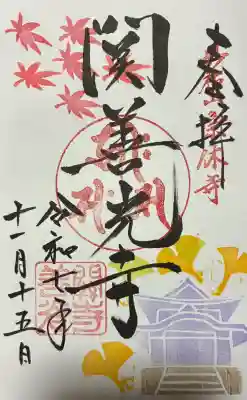 奉拝 宗休寺
関善光寺
令和七年
十一月十五日